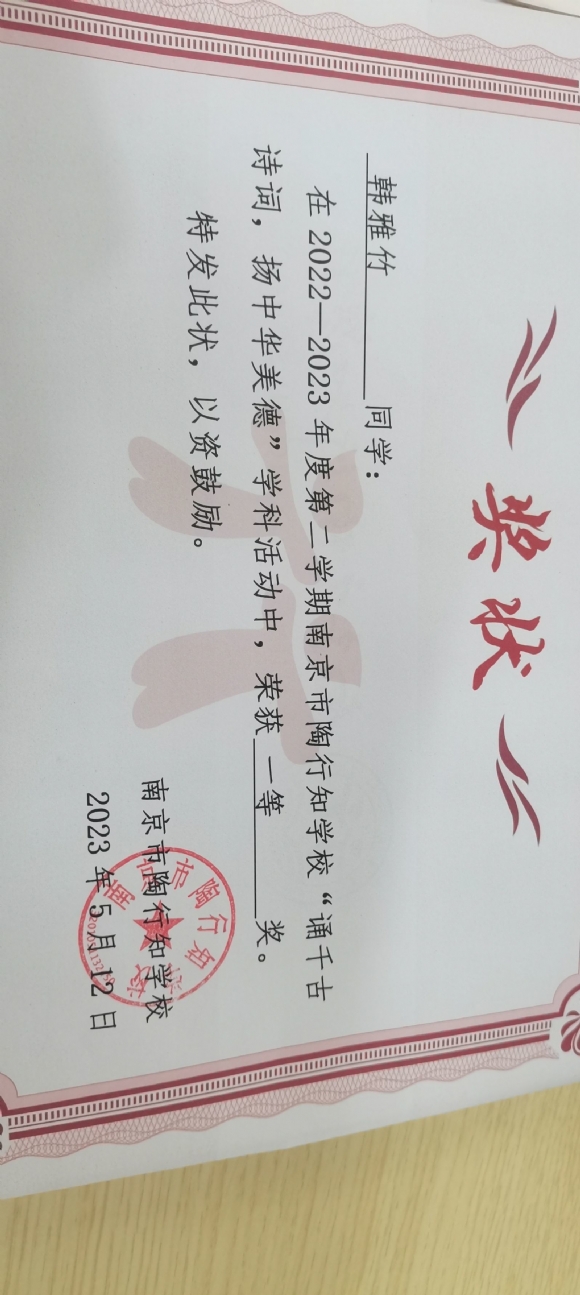 奖状
韩雅竹 同学：
在 2022—2023 年度第二学期南京市陶行知学校“诵千古
诗词，扬中华美德”学科活动中，荣获 一等 奖。
特发此状，以资鼓励。
南京市陶行知学校
2023 年 5 月 12 日
南京市陶行知学校